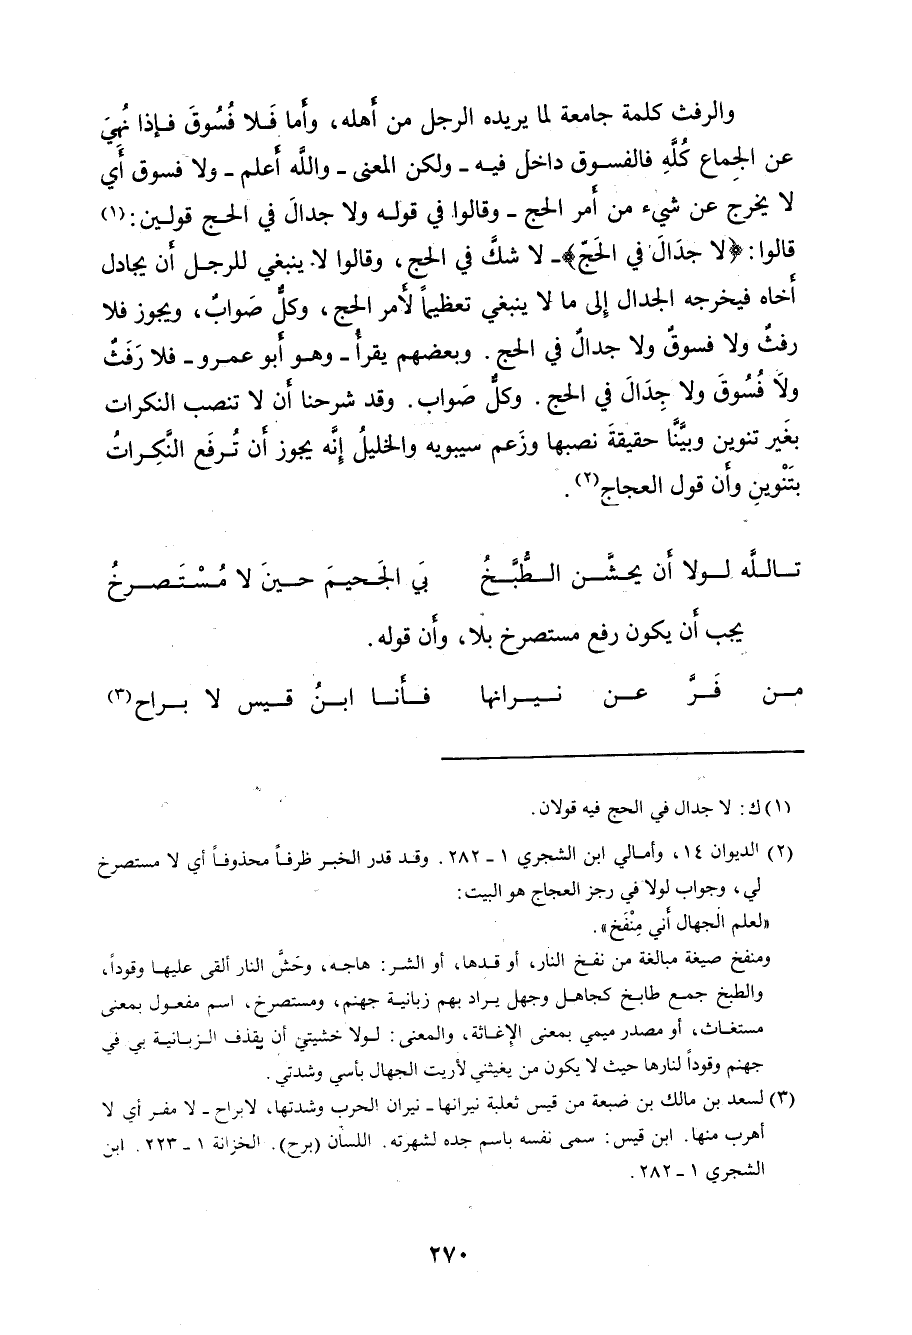 والرفث كلمة جامعة لما يريده الرجل من أَهله، وأَما فَلا فُسُوقَ فإذا نُهِيَ
عن الجماع كُلِّهِ فالفسوق داخل فيه - ولكن المعنى - واللَّه أَعلم - ولا فسوق أَي
لا يخرج عن شيء من أَمر الحج - وقالوا في قوله ولا جدالَ في الحج قولين: (١)
قالوا: ﴿لا جدَالَ في الحَجّ﴾ - لا شكَّ في الحج، وقالوا لا ينبغي للرجل أَن يجادل
أَخاه فيخرجه الجدال إلى ما لا ينبغي تعظيماً لأَمر الحج، وكلٌّ صَوابٌ، ويجوز فلا
رفثٌ ولا فسوقٌ ولا جدالٌ في الحج. وبعضهم يقرأُ - وهو أَبو عمرو - فلا رَفَثٌ
ولاَ فُسُوقَ ولا جِدَالَ في الحج. وكلٌّ صَواب. وقد شرحنا أَن لا تنصب النكرات
بغَير تنوين وبيَّنَّا حقيقةَ نصبها وزَعم سيبويه والخليلُ إنَّه يجوز أَن تُرفَع النَّكِراتُ
بتَنْوينٍ وأَن قول العجاج(٢).
تاللَّه لولا أَن يحشَّن الطُّبَّخُ بيَ الجَحيمَ حينَ لا مُسْتَصرخُ
يجب أَن يكون رفع مستصرخ بلا، وأَن قوله.
من فَرَّ عن نيرانها فأَنا ابنُ قيس لا براح(٣)
(١) ك: لا جدال في الحج فيه قولان.
(٢) الديوان ١٤، وأمالي ابن الشجري ١ - ٢٨٢. وقد قدر الخبر ظرفاً محذوفاً أي لا مستصرخ
لي، وجواب لولا في رجز العجاج هو البيت:
«لعلم الجهال أَني مِنْفَخ».
ومنفخ صيغة مبالغة من نفخ النار، أو قدها، أو الشر: هاجه، وحَشَّ النار ألقى عليها وقوداً،
والطبخ جمع طابخ كجاهل وجهل يراد بهم زبانية جهنم، ومستصرخ، اسم مفعول بمعنى
مستغاث، أو مصدر ميمي بمعنى الإغاثة، والمعنى: لولا خشيتي أن يقذف الزبانية بي في
جهنم وقوداً لنارها حيث لا يكون من يغيثني لأريت الجهال بأسي وشدتي.
(٣) لسعد بن مالك بن ضبعة من قيس ثعلبة نيرانها - نيران الحرب وشدتها، لابراح - لا مفر أي لا
أهرب منها. ابن قيس: سمى نفسه باسم جده لشهرته. اللسان (برح). الخزانة ١ - ٢٢٣. ابن
الشجري ١ - ٢٨٢.
٢٧٠